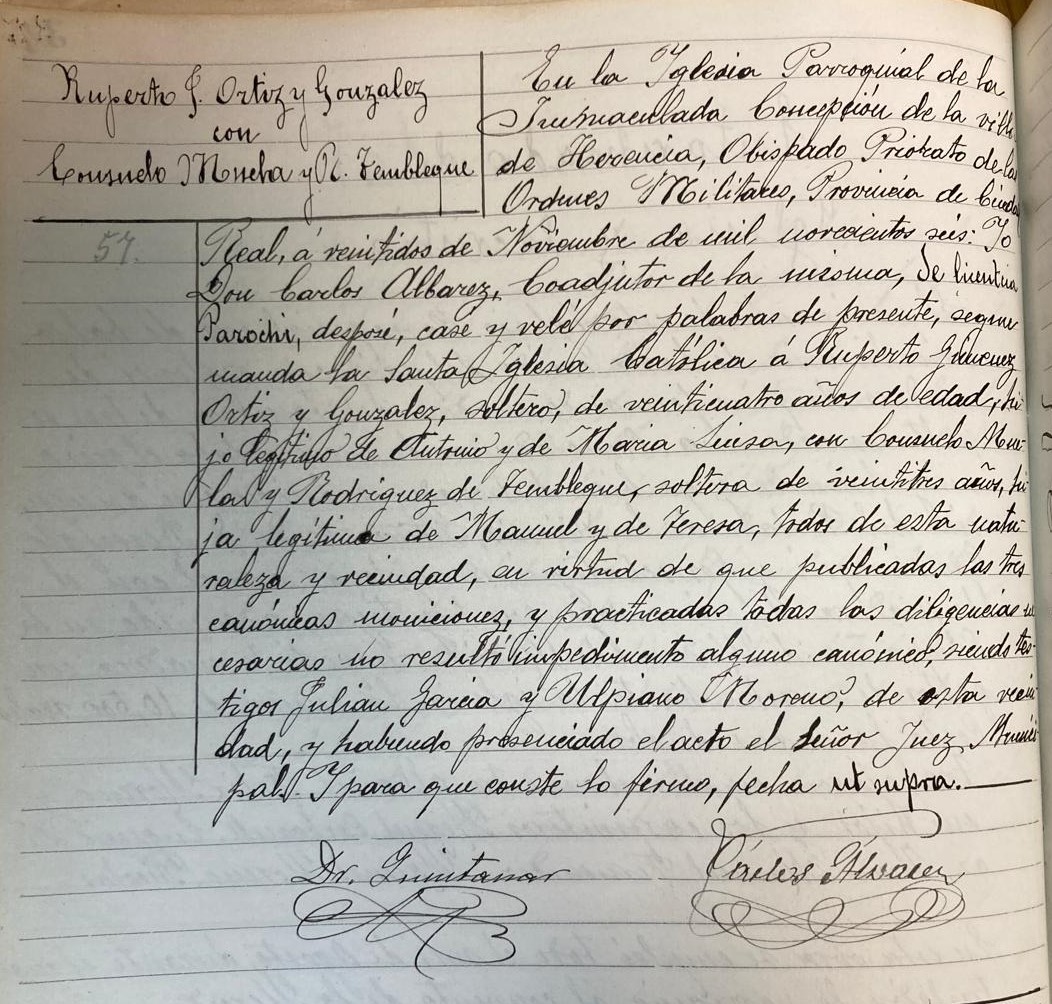 Ruperto J. Ortiz y Gonzalez
con
Consuelo Mucha y R. Tembleque
57.
En la Yglesia Parroquial de la
Inmaculada Concepción de la villa
de Herencia, Obispado Priorato de las
Ordenes Militares, Provincia de Ciudad
Real, á veintidos de Noviembre de mil novecientos seis: Yo
Don Carlos Albarez, Coadjutor de la misma, de licentia
Parochi, desposé, casé y velé por palabras de presente, segun
manda la Santa Yglesia Católica á Ruperto Gimenez
Ortiz y Gonzalez, soltero, de veinticuatro años de edad, hi-
jo legítimo de Antonio y de Maria Luisa, con Consuelo Mu-
la y Rodriguez de Tembleque, soltera de veintitres años, hi-
ja legítima de Manuel y de Teresa, todos de esta natu-
raleza y vecindad, en virtud de que publicadas las tres
canónicas moniciones, y practicadas todas las diligencias ne
cesarias no resultó impedimento alguno canónico, siendo tes-
tigos Julian Garcia y Ulpiano Moreno, de esta vecin
dad, y habiendo presenciado el acto el Señor Juez Munici
pal. Y para que conste lo firmo, fecha ut supra.
Dr. Quintanar
Cárlos Álvarez